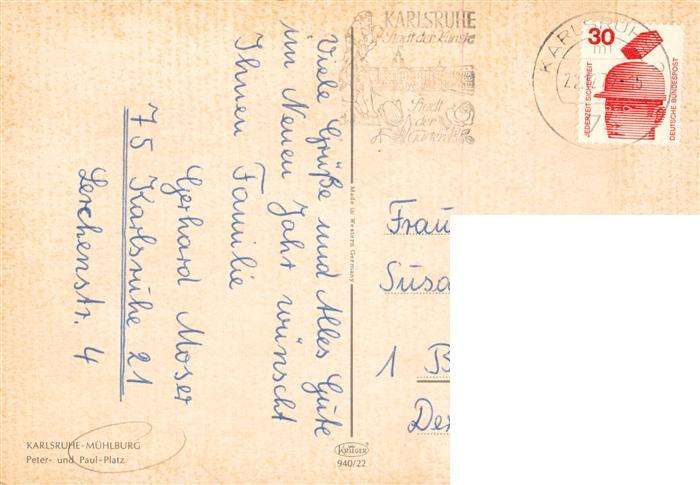 KARLSRUHE
Stadt der Kunste
Stadt
der
Gärten
KARLSRUHE
30
JEDERZEIT SICHERHEIT
DEUTSCHE BUNDESPOST
Viele Grüße und Alles Gute
im Neuen Jahr wünscht
Ihnen Familie
Gerhard Moser
75 Karlsruhe 21
Lerchenstr. 4
Made in Western Germany
Frau
Susa
1 B
Der
KARLSRUHE-MÜHLBURG
Peter- und Paul-Platz
KRÜGER
940/22